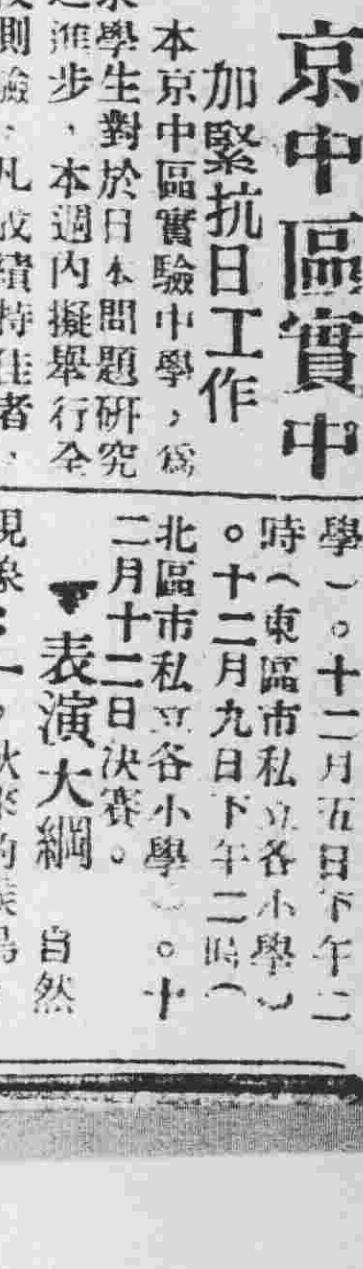 京中區實中
加緊抗日工作
本京中區實驗中學，爲
學生對於日本問題研究
進步，本週內擬舉行全
測驗，凡成績特佳者，
學）。十二月五日下午二
時（東區市私立各小學）
。十二月九日下午二時（
北區市私立各小學）。十
二月十二日決賽。
▼表演大綱　自然
現象：一，秋